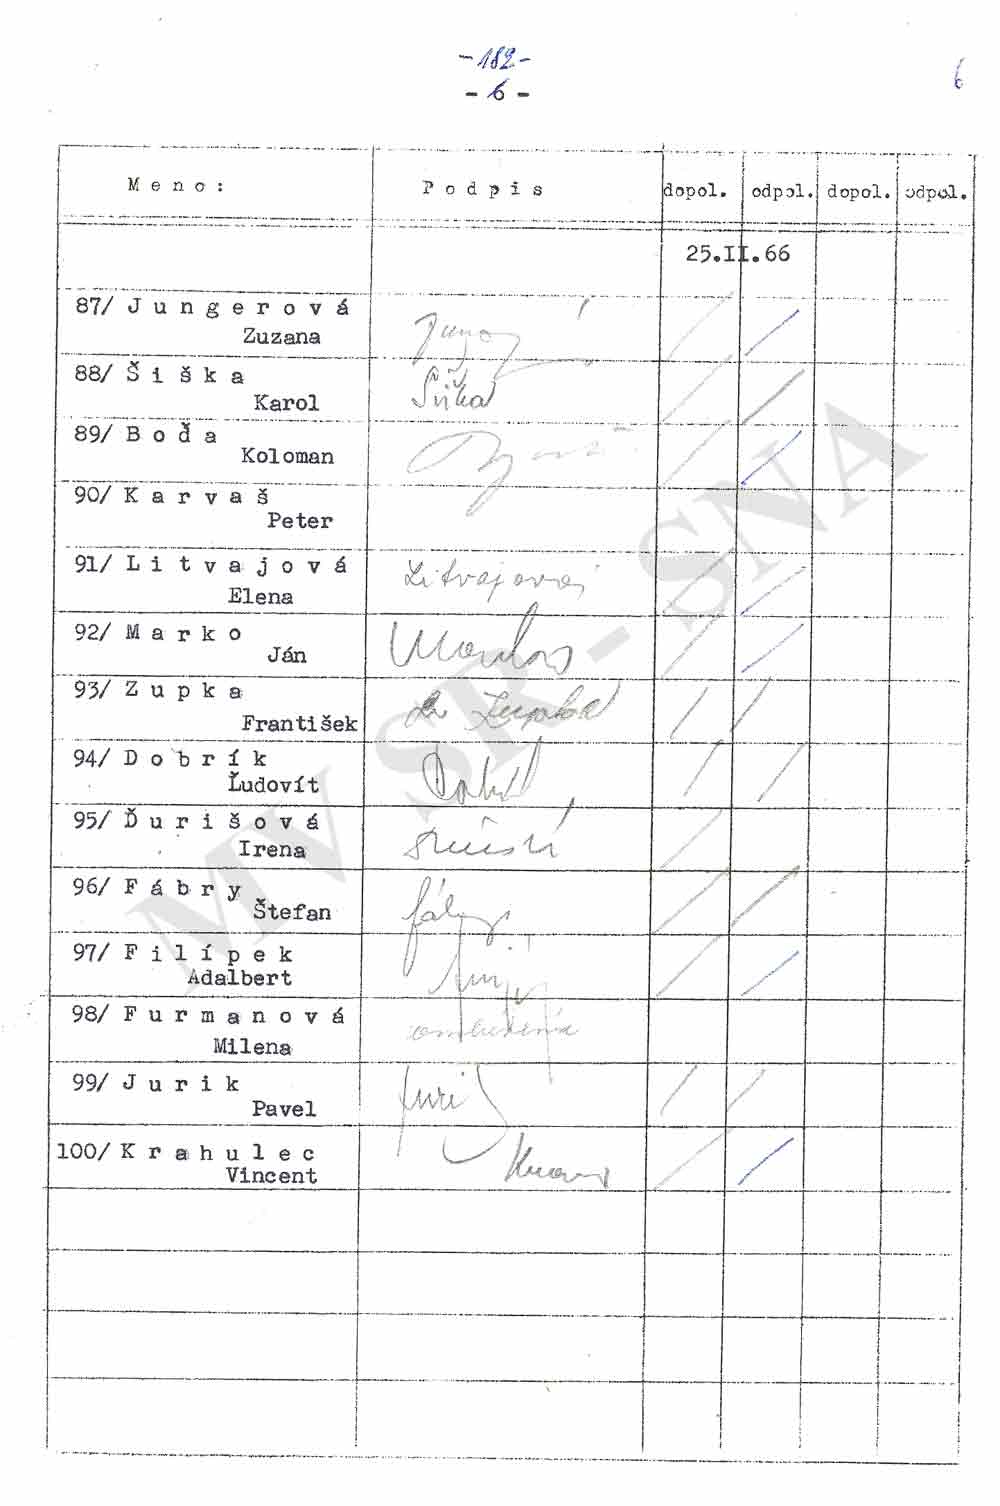 -182-
- 6 -
6
M e n o :
P o d p i s
dopol.
odpol.
dopol.
odpol.
25.II.66
87/ J u n g e r o v á
Zuzana
88/ Š i š k a
Karol
Šiška
89/ B o ď a
Koloman
90/ K a r v a š
Peter
91/ L i t v a j o v á
Elena
Litvajová
92/ M a r k o
Ján
Marko
93/ Z u p k a
František
Zupka
94/ D o b r í k
Ľudovít
95/ Ď u r i š o v á
Irena
96/ F á b r y
Štefan
Fábry
97/ F i l í p e k
Adalbert
98/ F u r m a n o v á
Milena
99/ J u r i k
Pavel
100/ K r a h u l e c
Vincent
MV SR - SNA